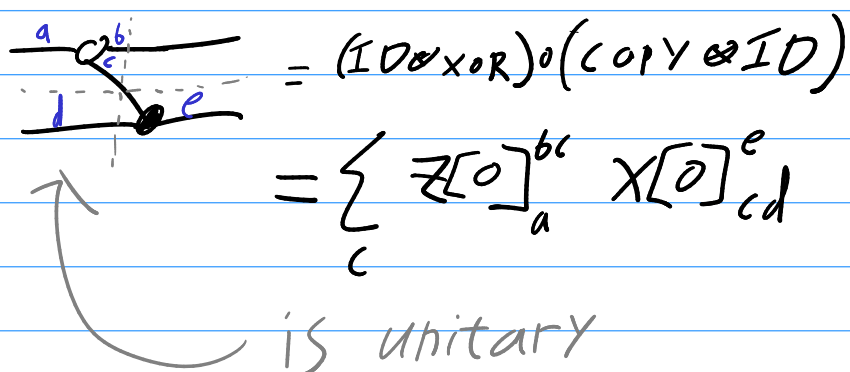 a b c d e
= (ID⊗XOR)∘(COPY⊗ID)
= Σ_c Z[0]_a^{bc} X[0]_{cd}^e
is unitary